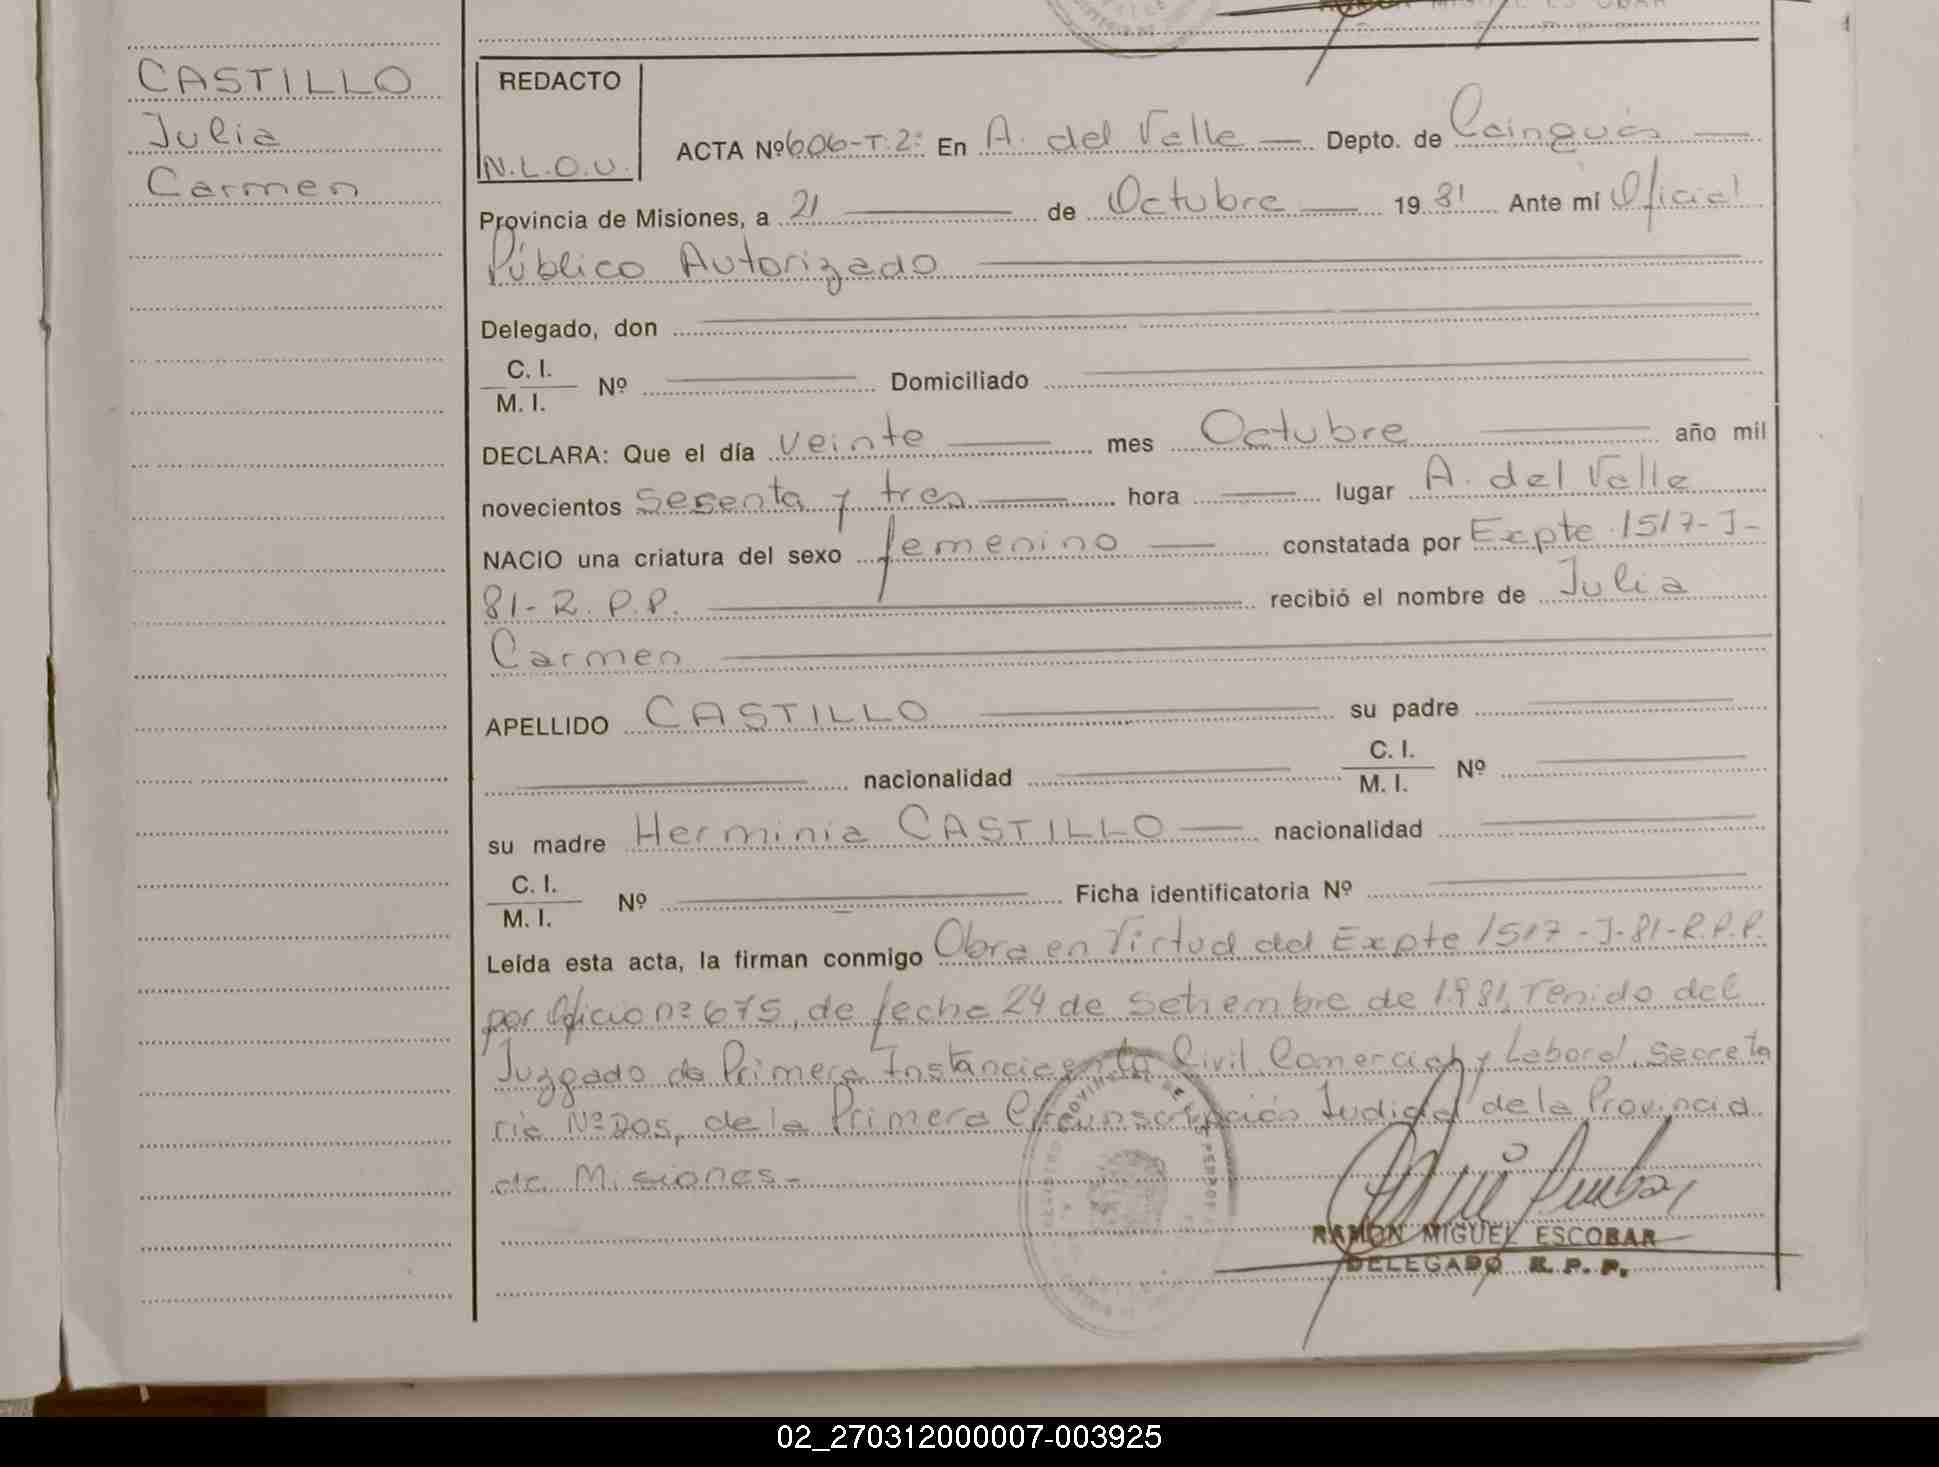 CASTILLO
Julia
Carmen
REDACTO
N.L.O.U.
ACTA Nº 606-T.2: En A. del Valle Depto. de Cainguás
Provincia de Misiones, a 21 de Octubre 1981 Ante mí Oficial
Público Autorizado
Delegado, don
C. I.
M. I. Nº Domiciliado
DECLARA: Que el día veinte mes Octubre año mil
novecientos sesenta y tres hora lugar A. del Valle
NACIO una criatura del sexo femenino constatada por Expte 1517-J-
81-R.P.P. recibió el nombre de Julia
Carmen
APELLIDO CASTILLO su padre
nacionalidad C. I.
M. I. Nº
su madre Herminia CASTILLO nacionalidad
C. I.
M. I. Nº Ficha identificatoria Nº
Leída esta acta, la firman conmigo Obra en Virtud del Expte 1517-J-81-R.P.P.
por Oficio nº 675, de fecha 24 de Setiembre de 1.981, Tenido del
Juzgado de Primera Instancia en lo Civil, Comercial y Laboral, Secreta
ria Nº Dos, de la Primera Circunscripción Judicial de la Provincia
de Misiones.-
RAMON MIGUEL ESCOBAR
DELEGADO R. P. P.
02_270312000007-003925